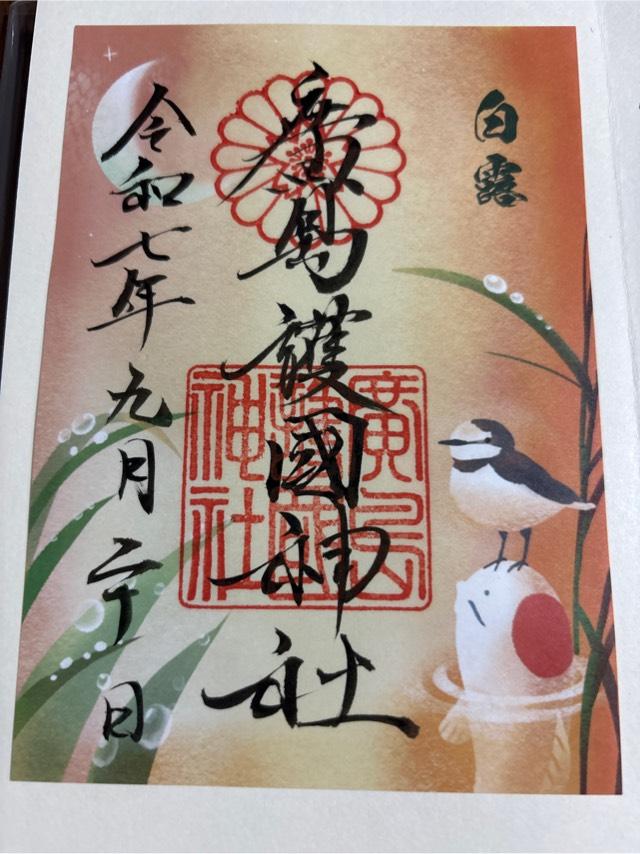 白露
廣島護國神社
廣島
護國
神社
令和七年九月二十日